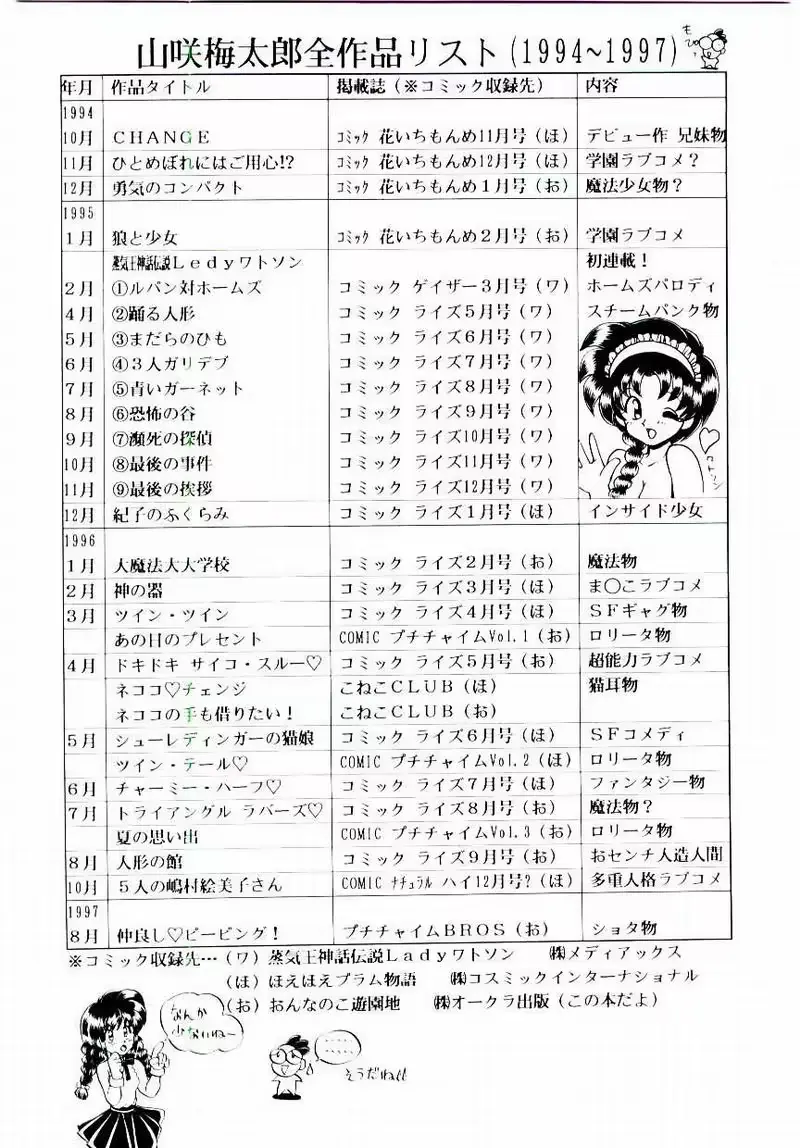 山咲梅太郎全作品リスト(1994~1997)
もぴっ
年月 作品タイトル 掲載誌(※コミック収録先) 内容
1994
10月 CHANGE コミック 花いちもんめ11月号(ほ) デビュー作 兄妹物
11月 ひとめぼれにはご用心!? コミック 花いちもんめ12月号(ほ) 学園ラブコメ?
12月 勇気のコンパクト コミック 花いちもんめ1月号(お) 魔法少女物?
1995
1月 狼と少女 コミック 花いちもんめ2月号(お) 学園ラブコメ
蒸気王神話伝説Ledyワトソン 初連載!
2月 ①ルパン対ホームズ コミック ゲイザー3月号(ワ) ホームズパロディ
4月 ②踊る人形 コミック ライズ5月号(ワ) スチームパンク物
5月 ③まだらのひも コミック ライズ6月号(ワ)
6月 ④3人ガリデブ コミック ライズ7月号(ワ)
7月 ⑤青いガーネット コミック ライズ8月号(ワ)
8月 ⑥恐怖の谷 コミック ライズ9月号(ワ)
9月 ⑦瀕死の探偵 コミック ライズ10月号(ワ)
10月 ⑧最後の事件 コミック ライズ11月号(ワ)
11月 ⑨最後の挨拶 コミック ライズ12月号(ワ)
12月 紀子のふくらみ コミック ライズ1月号(ほ) インサイド少女
1996
1月 大魔法大大学校 コミック ライズ2月号(お) 魔法物
2月 神の器 コミック ライズ3月号(ほ) ま〇こラブコメ
3月 ツイン・ツイン コミック ライズ4月号(ほ) SFギャグ物
あの日のプレセント COMIC プチチャイムVol.1(お) ロリータ物
4月 ドキドキ サイコ・スルー♡ コミック ライズ5月号(お) 超能力ラブコメ
ネココ♡チェンジ こねこCLUB(ほ) 猫耳物
ネココの手も借りたい! こねこCLUB(お)
5月 シューレディンガーの猫娘 コミック ライズ6月号(ほ) SFコメディ
ツイン・テール♡ COMIC プチチャイムVol.2(ほ) ロリータ物
6月 チャーミー・ハーフ♡ コミック ライズ7月号(ほ) ファンタジー物
7月 トライアングル ラバーズ♡ コミック ライズ8月号(お) 魔法物?
夏の思い出 COMIC プチチャイムVol.3(お) ロリータ物
8月 人形の館 コミック ライズ9月号(お) おセンチ人造人間
10月 5人の嶋村絵美子さん COMIC ナチュラル ハイ12月号?(ほ) 多重人格ラブコメ
1997
8月 仲良し♡ピーピング! プチチャイムBROS(お) ショタ物
※コミック収録先…(ワ)蒸気王神話伝説Ladyワトソン ㈱メディアックス
(ほ)ほえほえプラム物語 ㈱コスミックインターナショナル
(お)おんなのこ遊園地 ㈱オークラ出版(この本だよ)
なんか
少ないね~
……
……
そうだね